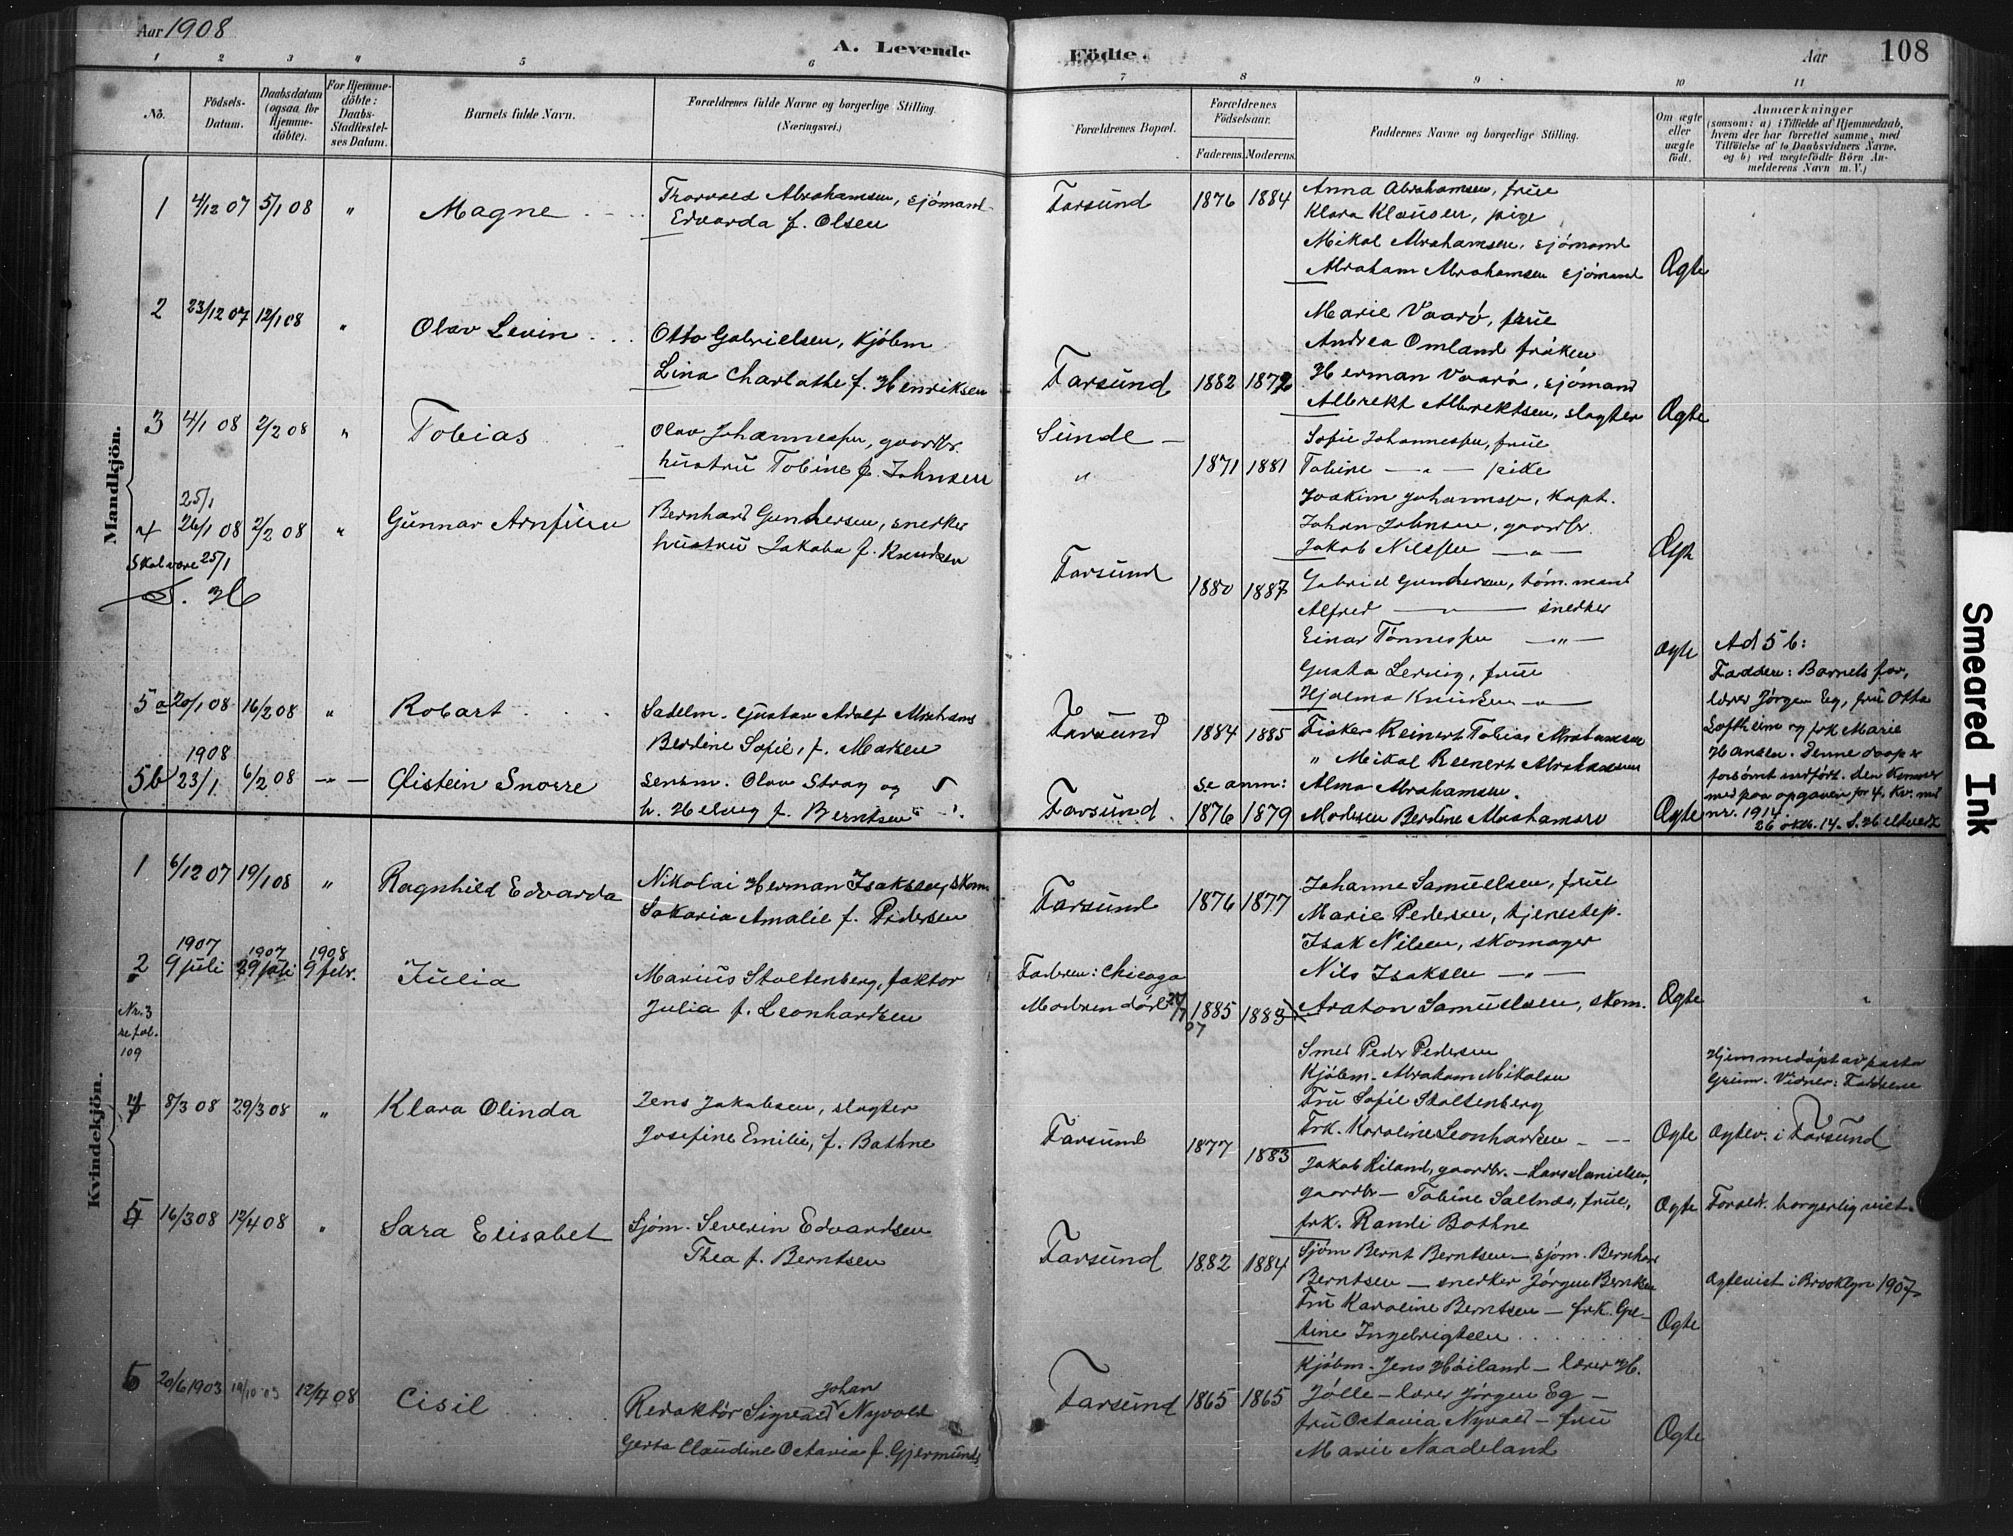 Aar 1908
A. Levende Födte.
Aar
108
1 2 3 4 5 6 7 8 9 10 11
No.
Födsels-
Datum.
Daabsdatum
(ogsaa for
Hjemme-
döbte).
For Hjemme-
döbte:
Daabs-
Stadfæstel-
ses Datum.
Barnets fulde Navn.
Forældrenes fulde Navne og borgerlige Stilling.
(Næringsvei.)
Forældrenes Bopæl.
Forældrenes
Födselsaar.
Faderens.
Moderens.
Faddernes Navne og borgerlige Stilling.
Om ægte
eller
uægte
födt.
Anmærkninger
(saasom: a) i Tilfælde af Hjemmedaab,
hvem der har forrettet samme, med
Tilföielse af to Daabsvidners Navne.
og b) ved uægtefödte Börn An-
melderens Navn m. V.)
Mandkjön.
1 4/12 07 5/1 08 " Magne
Thorvald Abrahamsen, sjømand
Edvarda f. Olsen
Farsund 1876 1884
Anna Abrahamsen, frue
Klara Klausen, pige
Mikal Abrahamsen, sjømand
Abraham Abrahamsen sjømand
Ægte
2 23/12 07 12/1 08 " Olav Levin
Otto Gabrielsen, kjøbm
Lina Charlothe f. Henriksen
Farsund 1882 1872
Marie Vaarø, frue
Andrea Omland frøken
Herman Vaarø, sjømand
Albrekt Albrektsen, slagter
Ægte
3 4/1 08 2/2 08 " Tobias
Olav Johannessen, gaardbr.
hustru Tobine f. Johnsen
Sunde
"
1871 1881
Sofie Johannessen, frue
Tobine — " — pike
Joakim Johannesen, kapt.
Johan Johnsen, gaardbr.
Jakob Nilssen — " —
Ægte
25/1
4 26/1 08 2/2 08 " Gunnar Arnfinn
Skal være 25/1
Bernhard Gundersen, snedker
hustru Jakoba f. Knudsen
Farsund 1880 1887
Gabriel Gundersen, tøm.mand
Alfred — " — snedker
Einar Tønnessen — " —
Gusta Lervig, frue
Hjalma Knudsen — " —
Ægte
5a 20/1 08 16/2 08 " Robart
Sadelm. Gustav Adolf Abrahams
Berdine Sofie, f. Marsen
Farsund 1884 1885
Fisker Reinert Tobias Abrahamsen
" Mikal Reinert Abrahamsen
Alma Abrahamsen.
Moderen Berdine Abrahamsen
Ægte
1908
5b 23/1 6/2 08 — " — Øistein Snorre
Sensm. Olav Stray og
h. Helvig f. Berntsen
Farsund
se anm:
1876 1879
Ad 5 b:
Faddere: Barnets far,
lærer Jørgen Eg, fru Otta
Loftheim og frk Marie
Hansen. Denne daap er
forsømt indført. den kommer
med paa opgaven for 4. Kv. med
nr. 1914
26 okt. 14.
Kvindekjön.
1 6/12 07 19/1 08 " Ragnhild Edvarda
Nikolai Herman Isaksen, skom
Sakaria Amalie f. Pedersen
Farsund 1876 1877
Johanne Samuelsen, frue
Marie Pedersen, tjenestep.
Isak Nilsen, skomager
Nils Isaksen — " —
Araton Samuelsen, skom.
Ægte
1907 1907 1908
2 9 juli 29 juli 9 febr. Julia
Marius Stoltenberg, faktor
Julia f. Leonhardsen
Faderen: Chicago
Moderen død
1885 1885
Smed Peder Pedersen
Kjøbm. Abraham Mikalsen
Fru Sofie Stoltenberg
Frk. Karoline Leonhardsen
Ægte
Hjemmedøpt av pastor
Grim. Vidner: Faddrene
Ægtev. i Farsund
Nr. 3
se fol.
109
4 8/3 08 29/3 08 " Klara Olinda
Jens Jakobsen, slagter
Josefine Emilie, f. Bothne
Farsund 1877 1883
Jakob Liland, gaardbr. — Lars Danielsen,
gaardbr — Tobine Saltnæs, frue,
frk. Randi Bothne
Ægte Foræld. borgerlig viet
5 16/3 08 12/4 08 " Sara Elisabet
Sjøm. Severin Edvardsen
Thea f. Berntsen
Farsund 1882 1884
Sjøm Bernt Berntsen — sjøm. Bernhard
Berntsen — snedker Jørgen Berntsen
Fru Karoline Berntsen — frk. Ge-
tine Ingebrigtsen
Ægte
Ægteviet i Brooklyn 1907
20/6 1903 12/4 08 Cisil
Johan
Redaktør Sigvald Nyvold
Gerta Claudine Octavia f. Gjermunds
Farsund 1865 1865
Kjøbm. Jens Høiland — lærer H.
Jølle — lærer Jørgen Eg —
fru Octavia Nyvold — fru
Marie Naadeland
Ægte
Smeared Ink